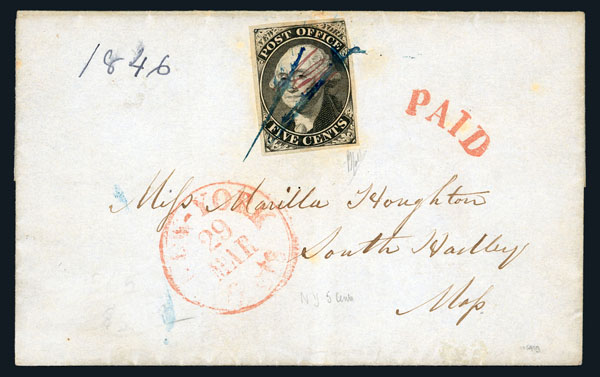 1846
POST OFFICE
FIVE CENTS
PAID
Miss Marilla Houghton
South Hadley
Mass.
NEW-YORK
29
MAR
N Y 5 Cents